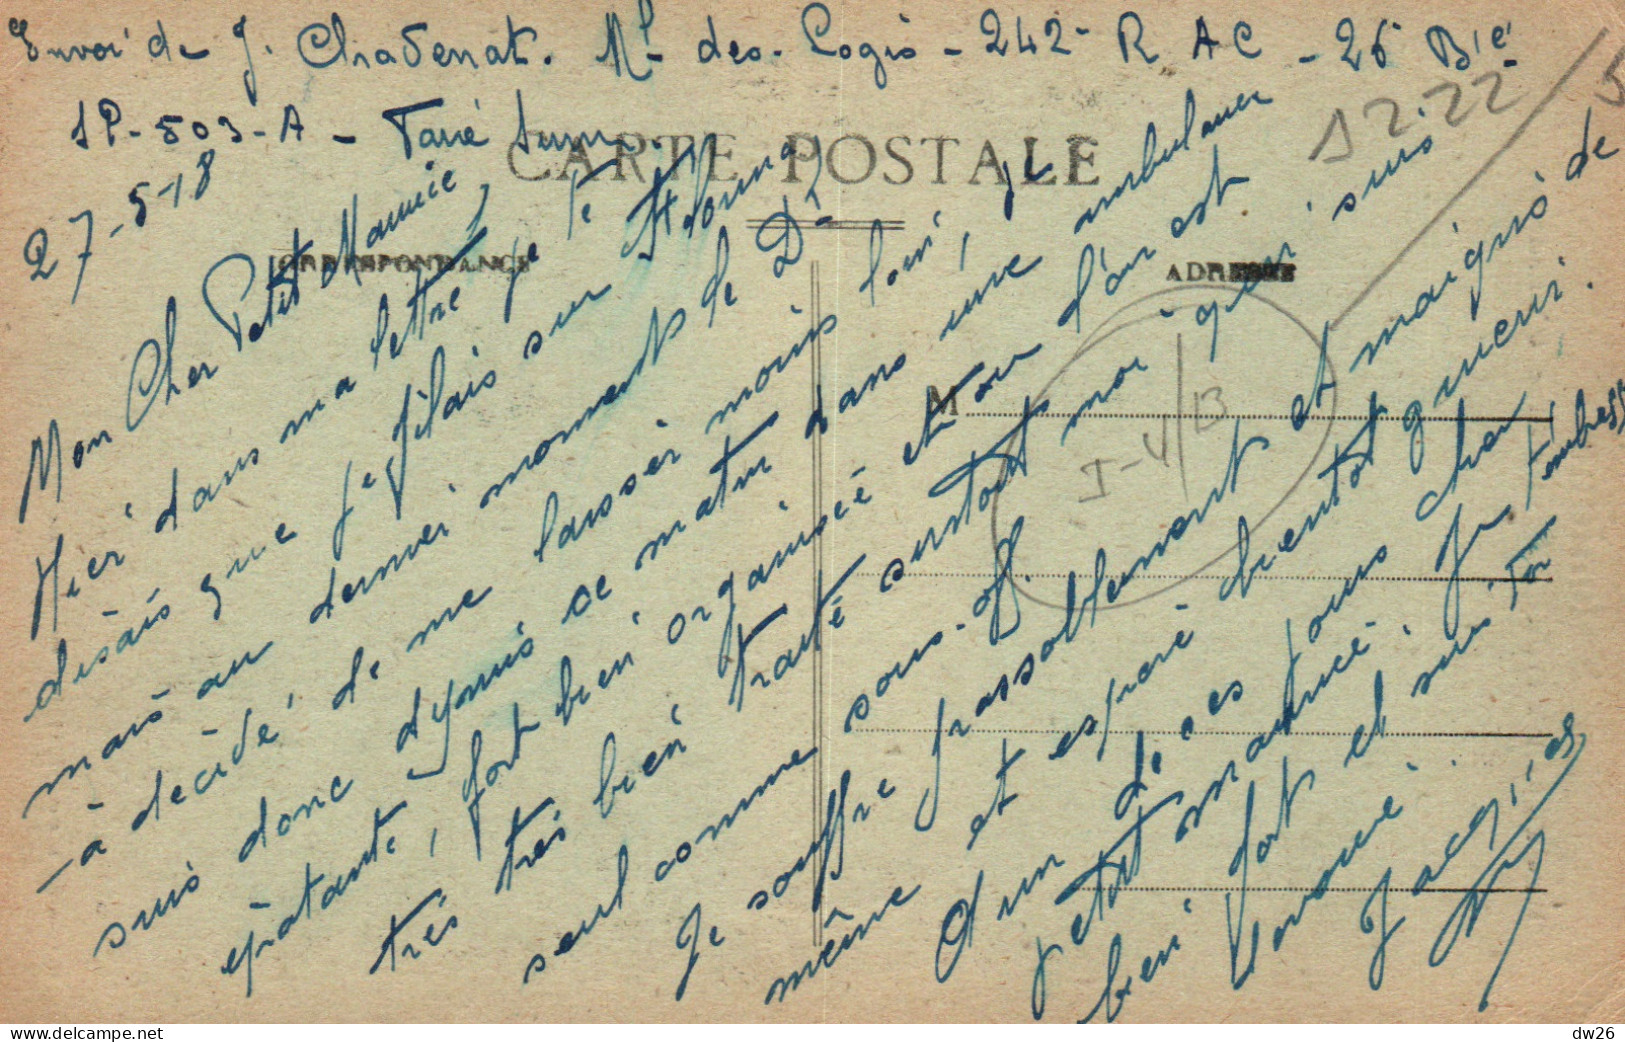 Envoi de J. Chavenat. Ml des-Logis - 242e R A C - 26 Bie
SP-503-A -
CARTE POSTALE
27-5-18
CORRESPONDANCE
ADRESSE
12.22 / 5
M
I-4/B
Mon Cher Petit Maurice,
Hier dans ma lettre je te
disais que je filais sur
mais au dernier moment le Dr
à décidé de me laisser moins loin, je
suis donc depuis ce matin dans une ambulance
épatante, fort bien organisée et où l'on est
très très bien traité surtout moi qui suis
seul comme sous-off.
Je souffre passablement et maigris de
même et espère bientot guerrir.
D'un de ces jours cher
petit maurice. Je t'embrasse
bien fort et suis ton
Jacques